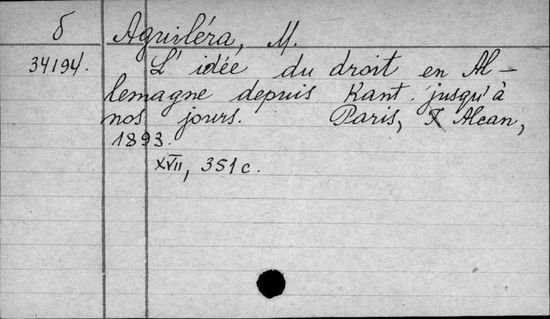 б Aguiléra, M.
34194. L'idée du droit en Al-
lemagne depuis Kant jusqu'à
nos jours. Paris, F. Alcan,
1893.
XVII, 351 c.